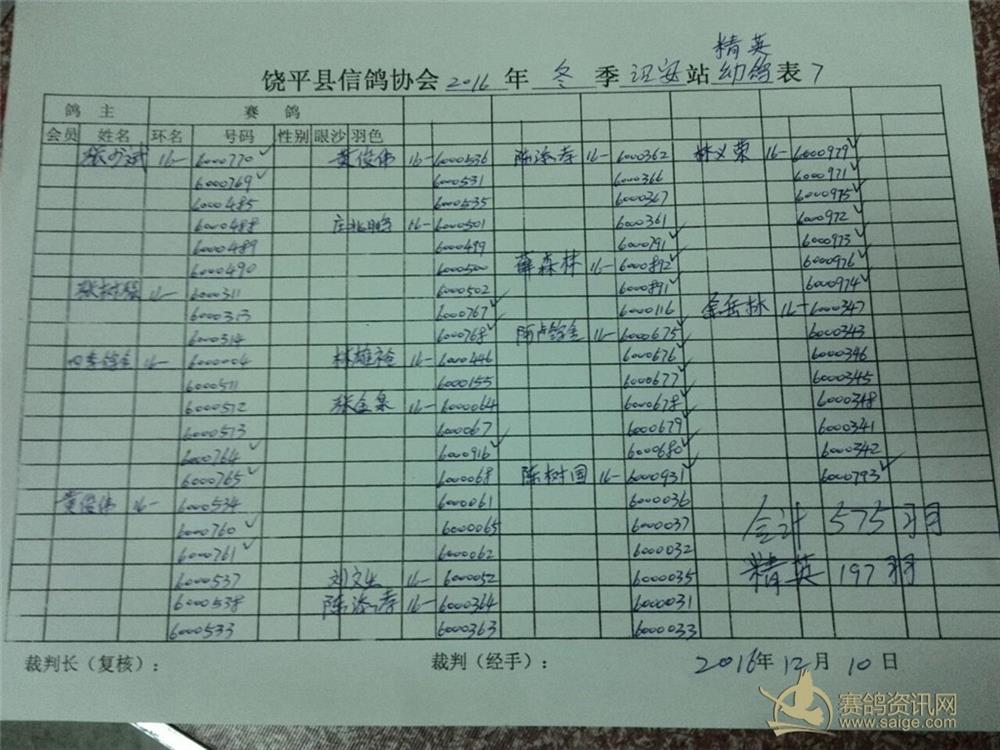 精英
饶平县信鸽协会 2016 年 冬 季 诏安 站 幼鸽 表 7
鸽 主 赛 鸽
会员 姓名 环名 号码 性别 眼沙 羽色
16- 6000770✓ 黄俊伟 16- 6000536 陈添孝 16- 6000362 林义荣 16- 6000979✓
6000769✓ 6000531 6000366 6000971✓
6000485 6000535 6000367 6000975✓
6000488 16- 6000501 6000361 6000972✓
6000489 6000499 6000791✓ 6000973✓
6000490 6000500 薛森林 16- 6000892✓ 6000976✓
张树强 16- 6000311 6000502 6000891✓ 6000974✓
6000313 6000767✓ 6000116 余岳林 16- 6000347
6000314 6000768✓ 16- 6000675✓ 6000343
四季鸽舍 16- 6000004 林雄裕 16- 6000446 6000676✓ 6000346
6000511 6000155 6000677✓ 6000345
6000512 张金泉 16- 6000064 6000678✓ 6000348
6000513 6000067 6000679✓ 6000341
6000764✓ 6000916✓ 6000680✓ 6000342
6000765✓ 6000068 陈树国 16- 6000931✓ 6000793✓
黄俊伟 16- 6000534 6000061 6000036
6000760✓ 6000065 6000037 合计 575 羽
6000761✓ 6000062 6000032
6000537 刘文生 16- 6000052 6000035 精英 197 羽
6000538 陈添孝 16- 6000364 6000031
6000533 6000363 6000033
裁判长（复核）： 裁判（经手）： 2016年 12月 10日
赛鸽资讯网
www.saige.com